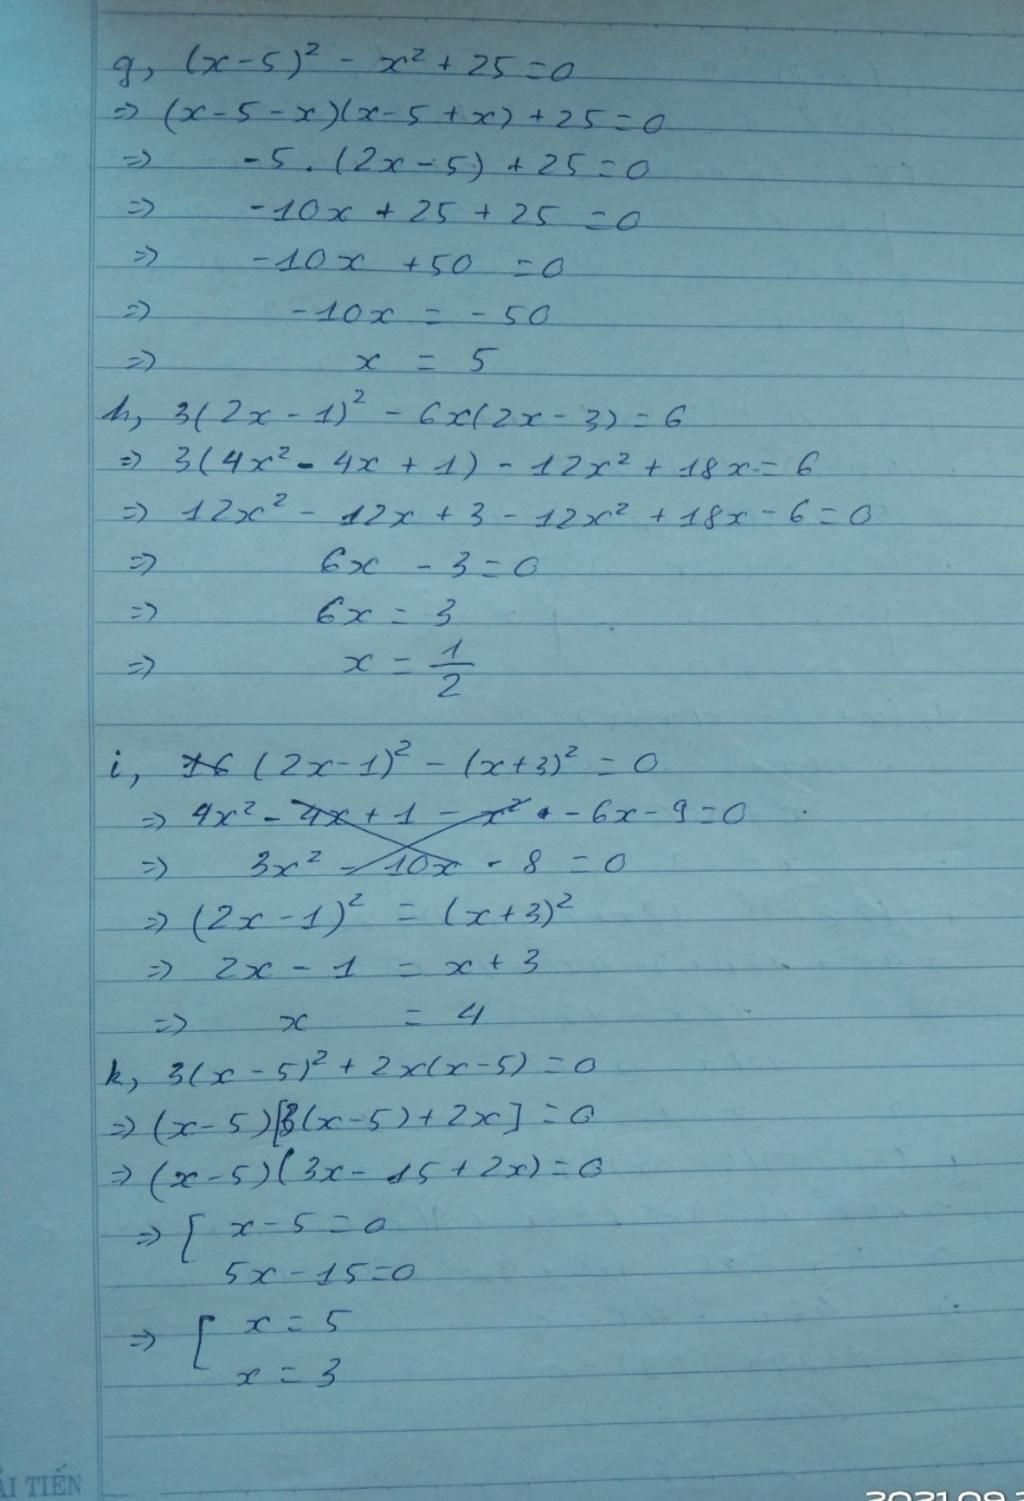 g, (x-5)² - x² + 25 = 0
=> (x-5-x)(x-5+x) + 25 = 0
=> -5.(2x-5) + 25 = 0
=> -10x + 25 + 25 = 0
=> -10x +50 = 0
=> -10x = -50
=> x = 5
h, 3(2x-1)² - 6x(2x-3) = 6
=> 3(4x² - 4x + 1) - 12x² + 18x = 6
=> 12x² - 12x + 3 - 12x² + 18x - 6 = 0
=> 6x - 3 = 0
=> 6x = 3
=> x = 1/2
i, 16 (2x-1)² - (x+3)² = 0
=> 4x² - 4x + 1 - x² - 6x - 9 = 0
=> 3x² - 10x - 8 = 0
=> (2x-1)² = (x+3)²
=> 2x - 1 = x + 3
=> x = 4
k, 3(x-5)² + 2x(x-5) = 0
=> (x-5)[3(x-5)+2x] = 0
=> (x-5)(3x-15+2x) = 0
=> [ x-5 = 0
5x-15=0
=> [ x = 5
x = 3
ẢI TIẾN